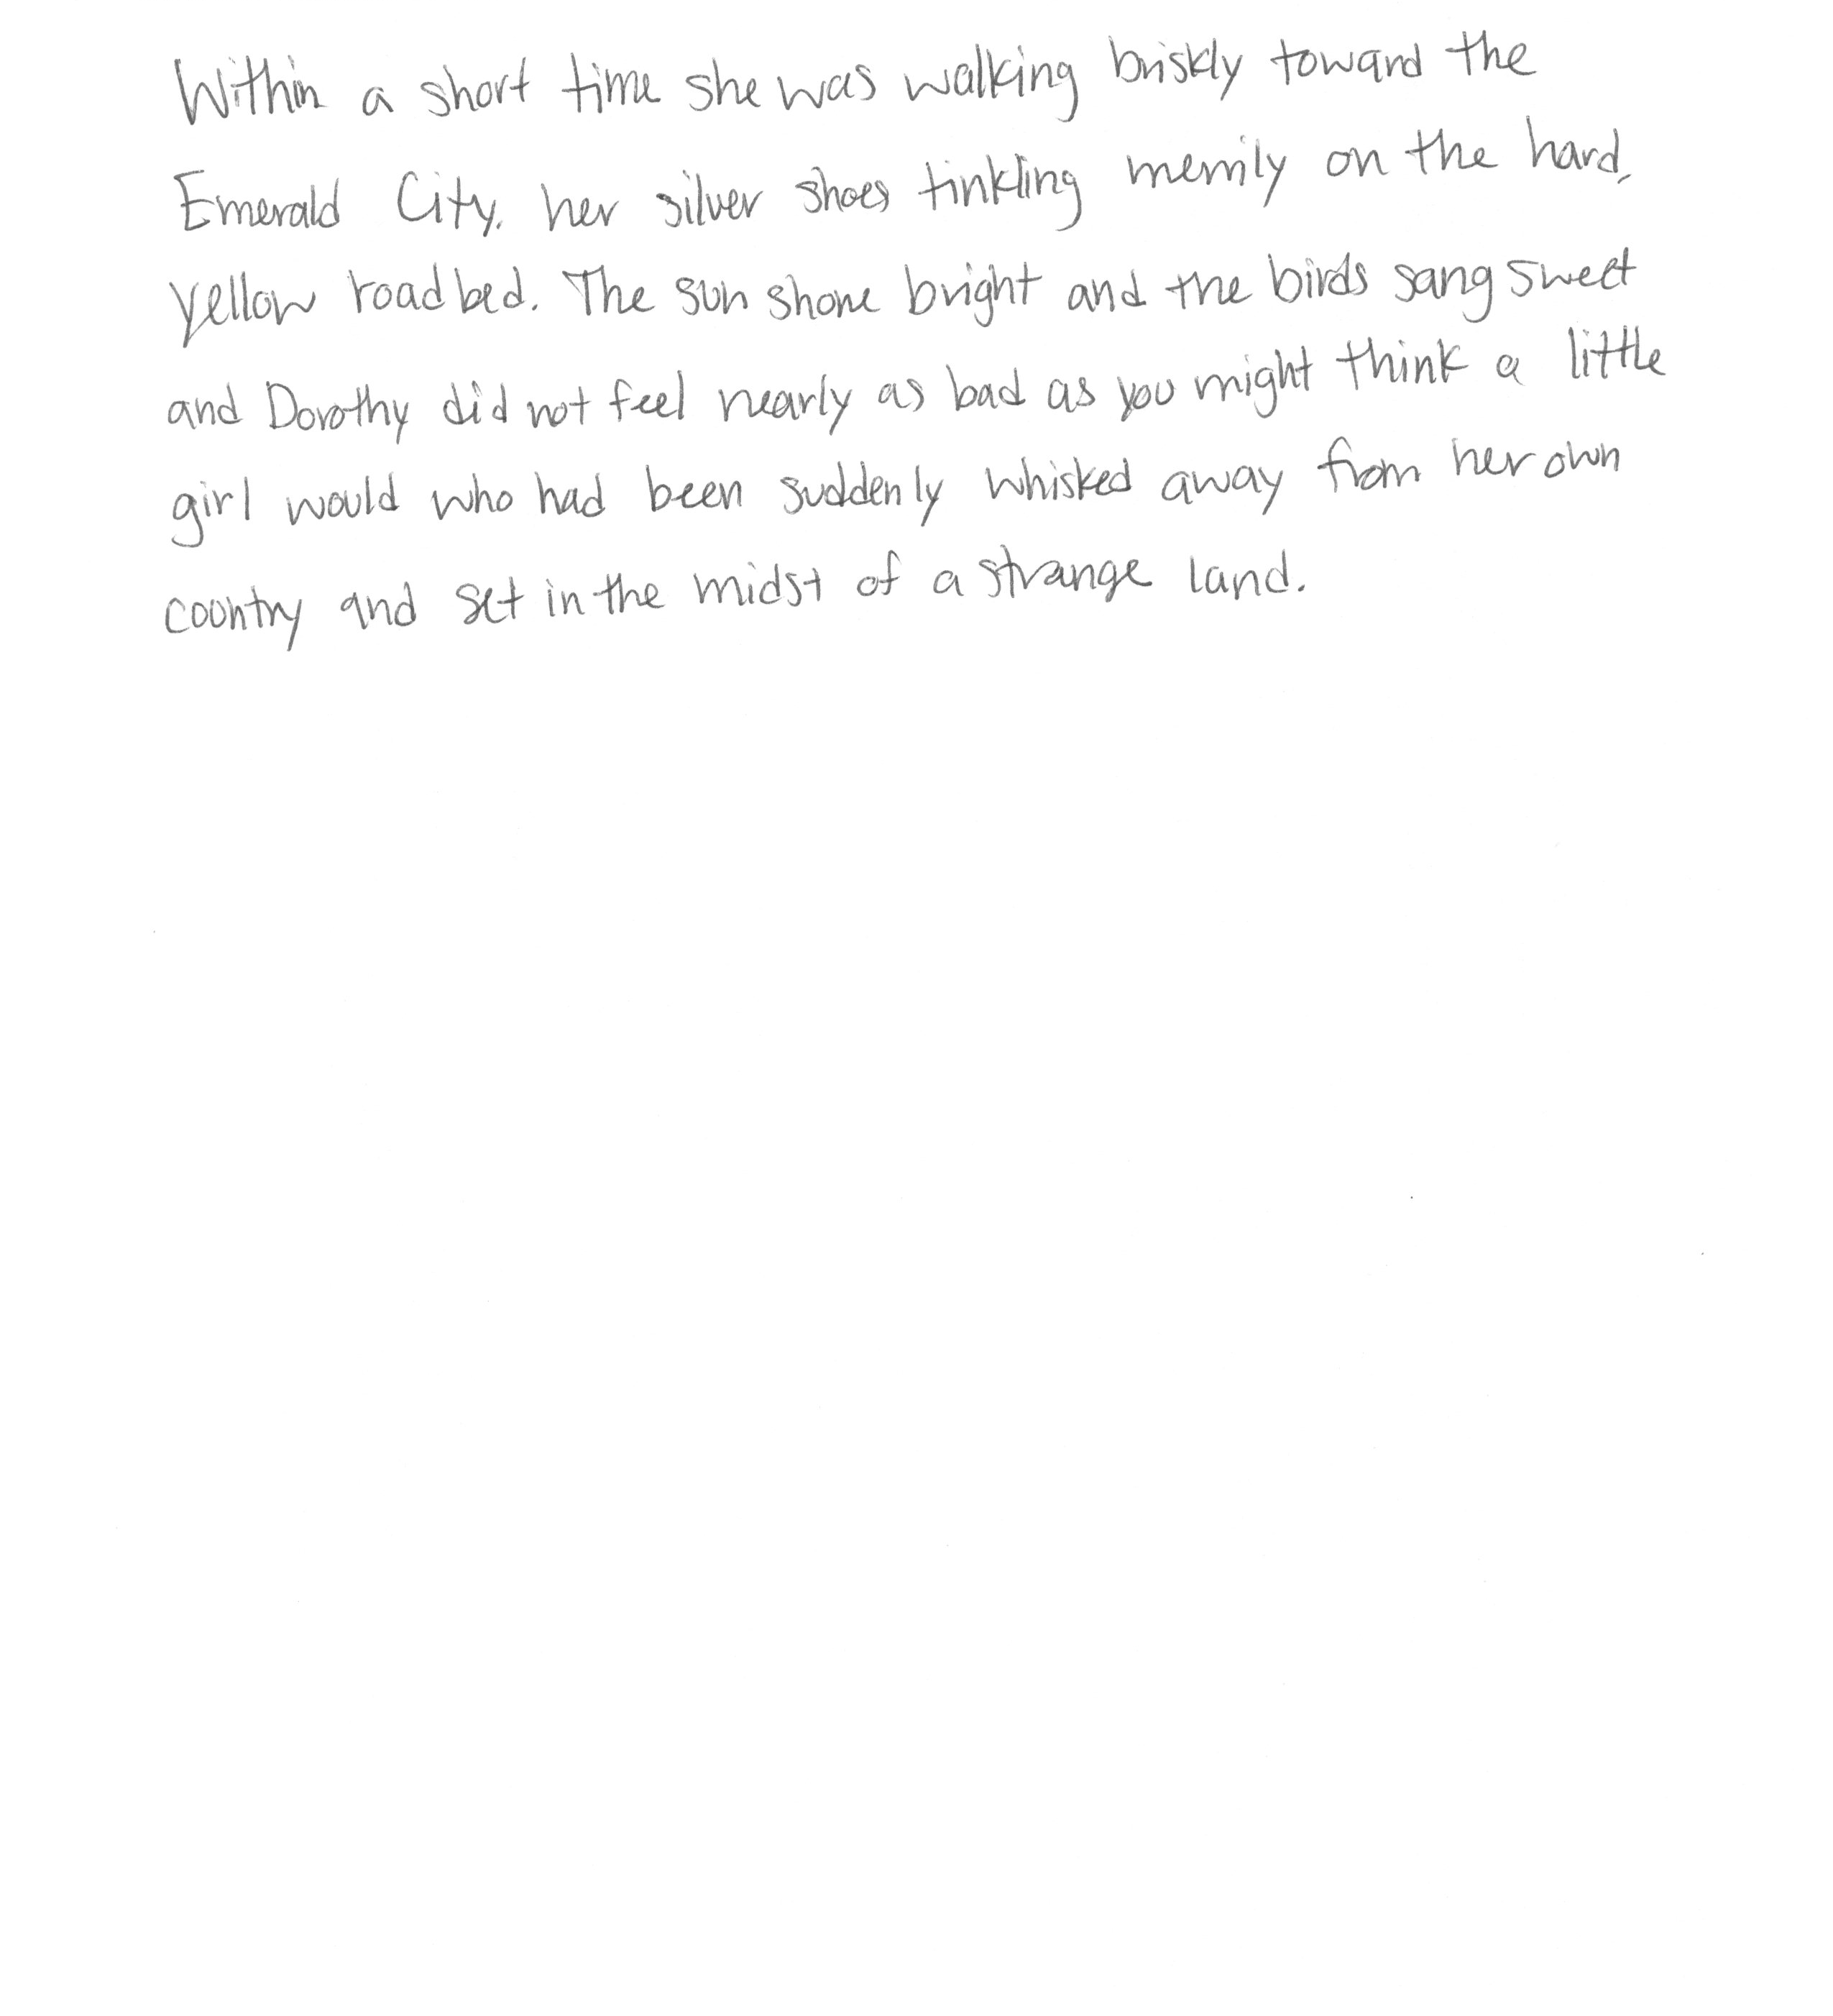 Within a short time she was walking briskly toward the
Emerald City, her silver shoes tinkling merrily on the hard,
yellow roadbed. The sun shone bright and the birds sang sweet
and Dorothy did not feel nearly as bad as you might think a little
girl would who had been suddenly whisked away from her own
country and set in the midst of a strange land.